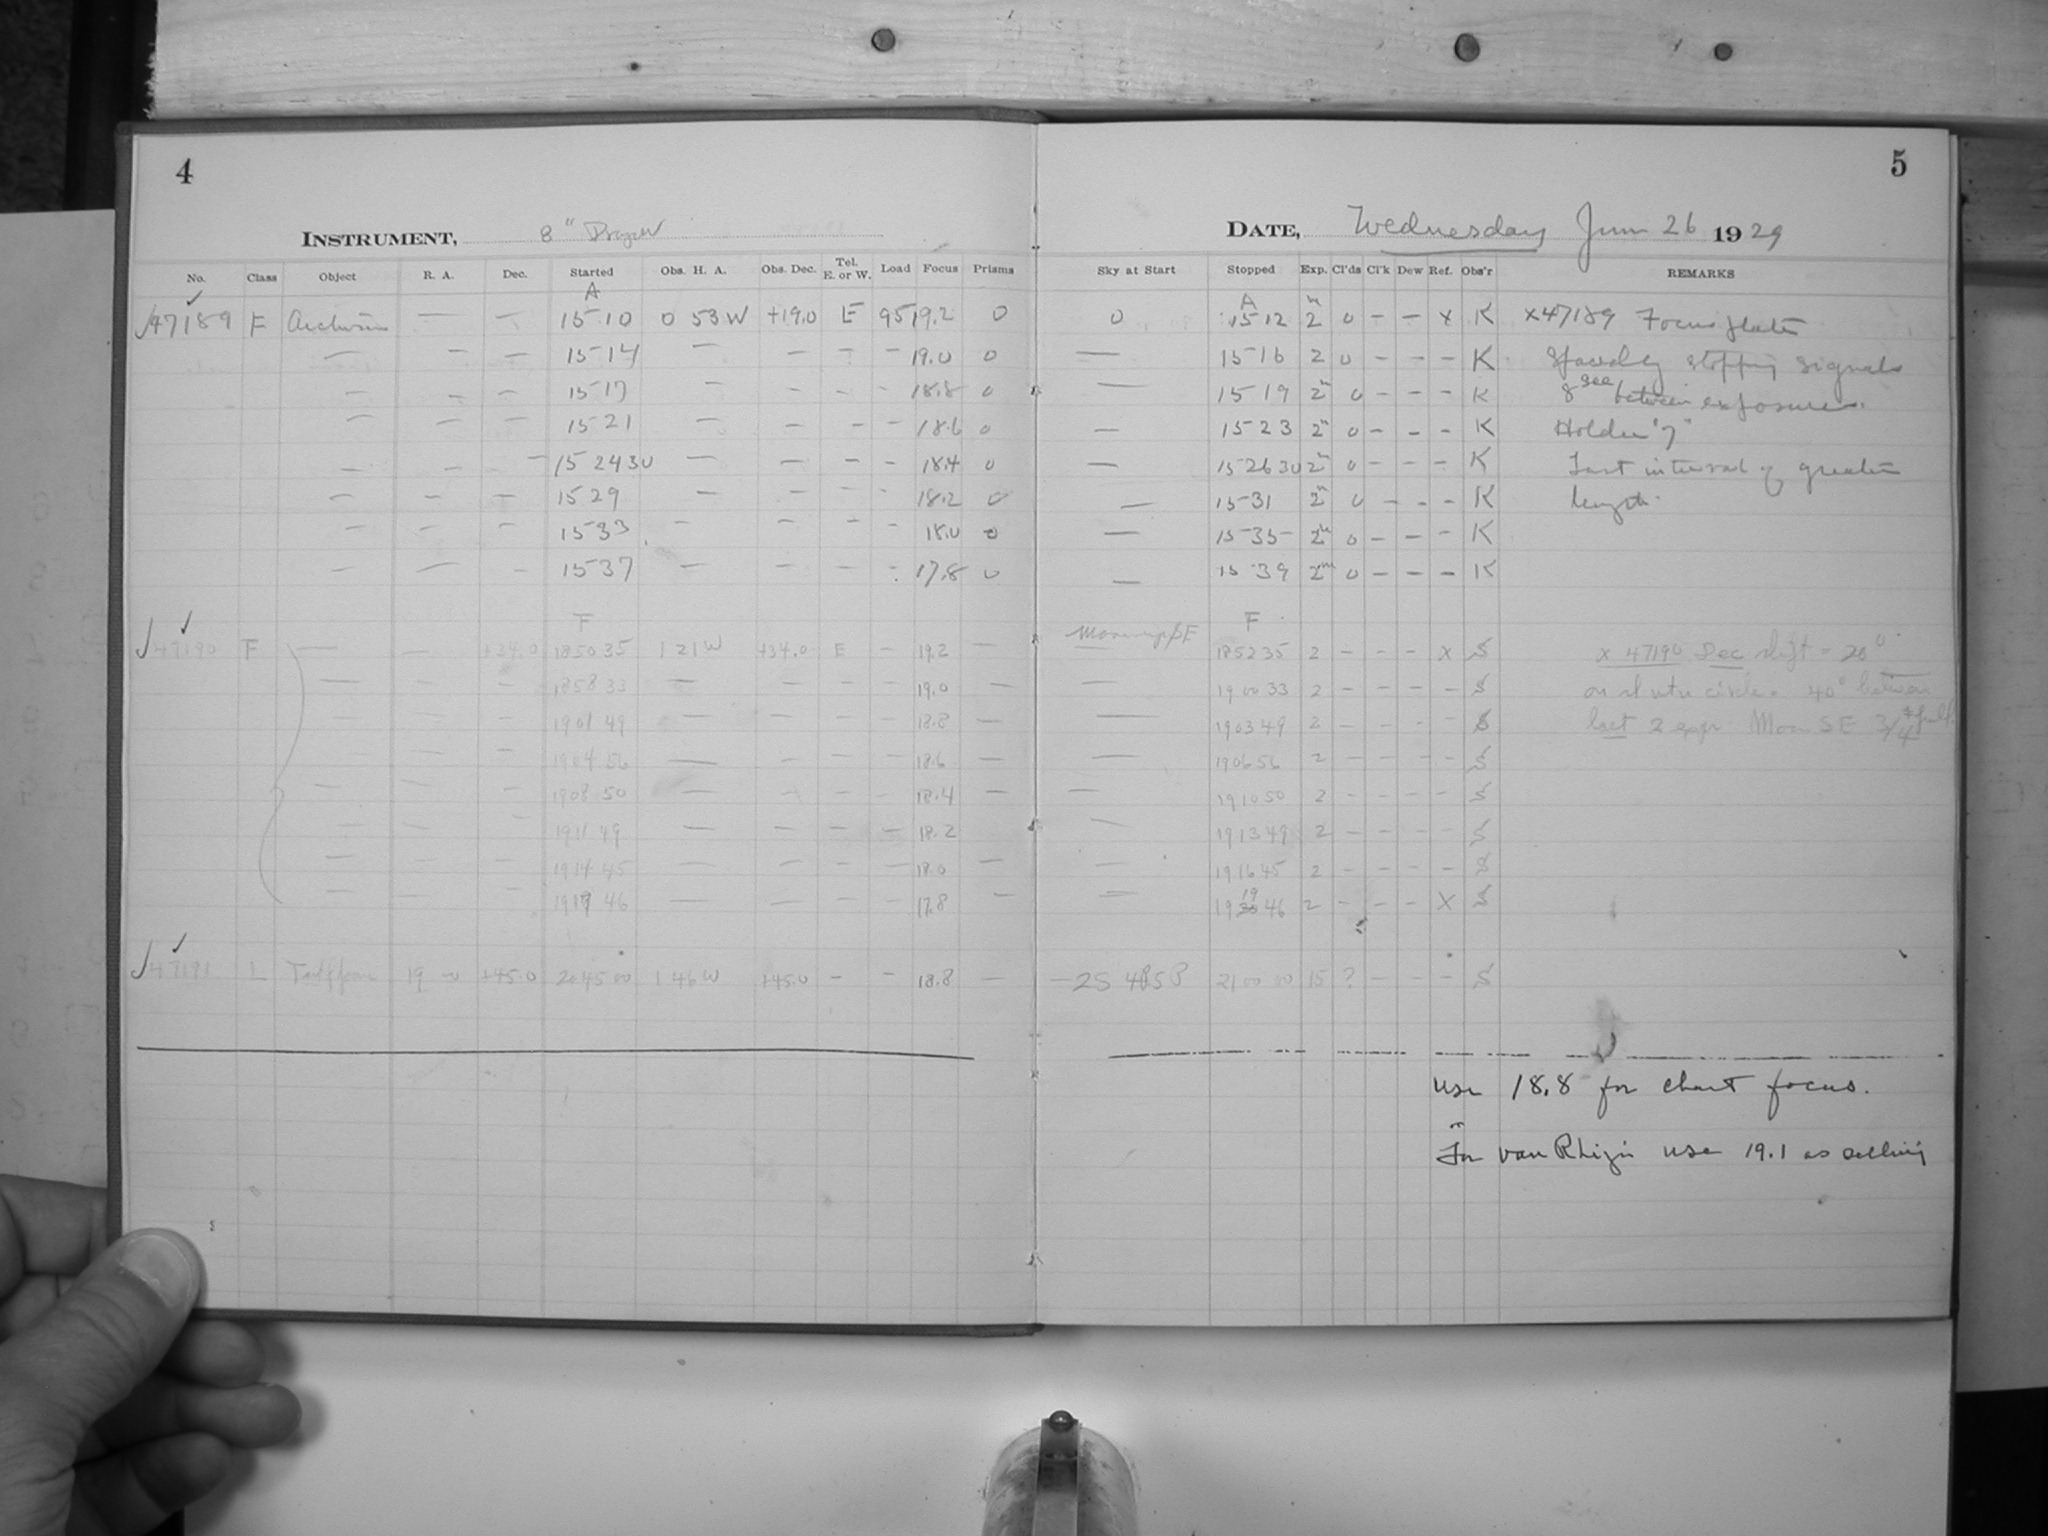 4
INSTRUMENT, 8" Draper
No. Class Object R. A. Dec. Started Obs. H. A. Obs. Dec. Tel. E. or W. Load Focus Prisms
A
47189 F Arcturus — — 15 10 0 53 W +19.0 E 95 19.2 0
— — — 15 14 — — - - 19.0 0
— — — 15 17 — — - 18.8 0
— — — 15 21 — — - - 18.6 0
— — — 15 24 30 — — - - 18.4 0
— — — 15 29 — — - - 18.2 0
— — — 15 33 — — - - 18.0 0
— — — 15 37 — — - - 17.8 0
F
47190 F — — +34.0 18 50 35 1 21 W +34.0 E - 19.2 —
— — — 18 58 33 — — - - 19.0 —
— — — 19 01 49 — — - - 18.8 —
— — — 19 04 56 — — - - 18.6 —
— — — 19 08 50 — — - - 18.4 —
— — — 19 11 49 — — - - 18.2
— — — 19 14 45 — — - - 18.0 —
— — — 19 17 46 — — - - 17.8 —
47191 L 19 0 +45.0 20 45 00 1 46 W +45.0 - - 18.8 —
5
DATE, Wednesday Jun 26 1929
Sky at Start Stopped Exp. Cl'ds Cl'k Dew Ref. Obs'r REMARKS
A m
0 15 12 2 0 - - x K x 47189 Focus plate
— 15 16 2 0 - - - K stopping signals
— 15 19 2m 0 - - - K 8 sec between exposures.
— 15 23 2m 0 - - - K Holder "7"
— 15 26 30 2m 0 - - - K Last interval of greater
— 15 31 2m 0 - - - K length.
— 15 35 2m 0 - - - K
— 15 39 2m 0 - - - K
F
Moon up SE 18 52 35 2 - - - x S x 47190 Dec shift = 20°
— 19 00 33 2 - - - - S on circle. 40° between
— 19 03 49 2 - - - - S last 2 exps. Moon SE 3/4 full.
— 19 06 56 2 - - - - S
— 19 10 50 2 - - - - S
— 19 13 49 2 - - - - S
— 19 16 45 2 - - - - S
— 19 19 46 2 - - - x S
21 00 00 15 ? - - - S
use 18.8 for chart focus.
For van Rhijn use 19.1 as setting